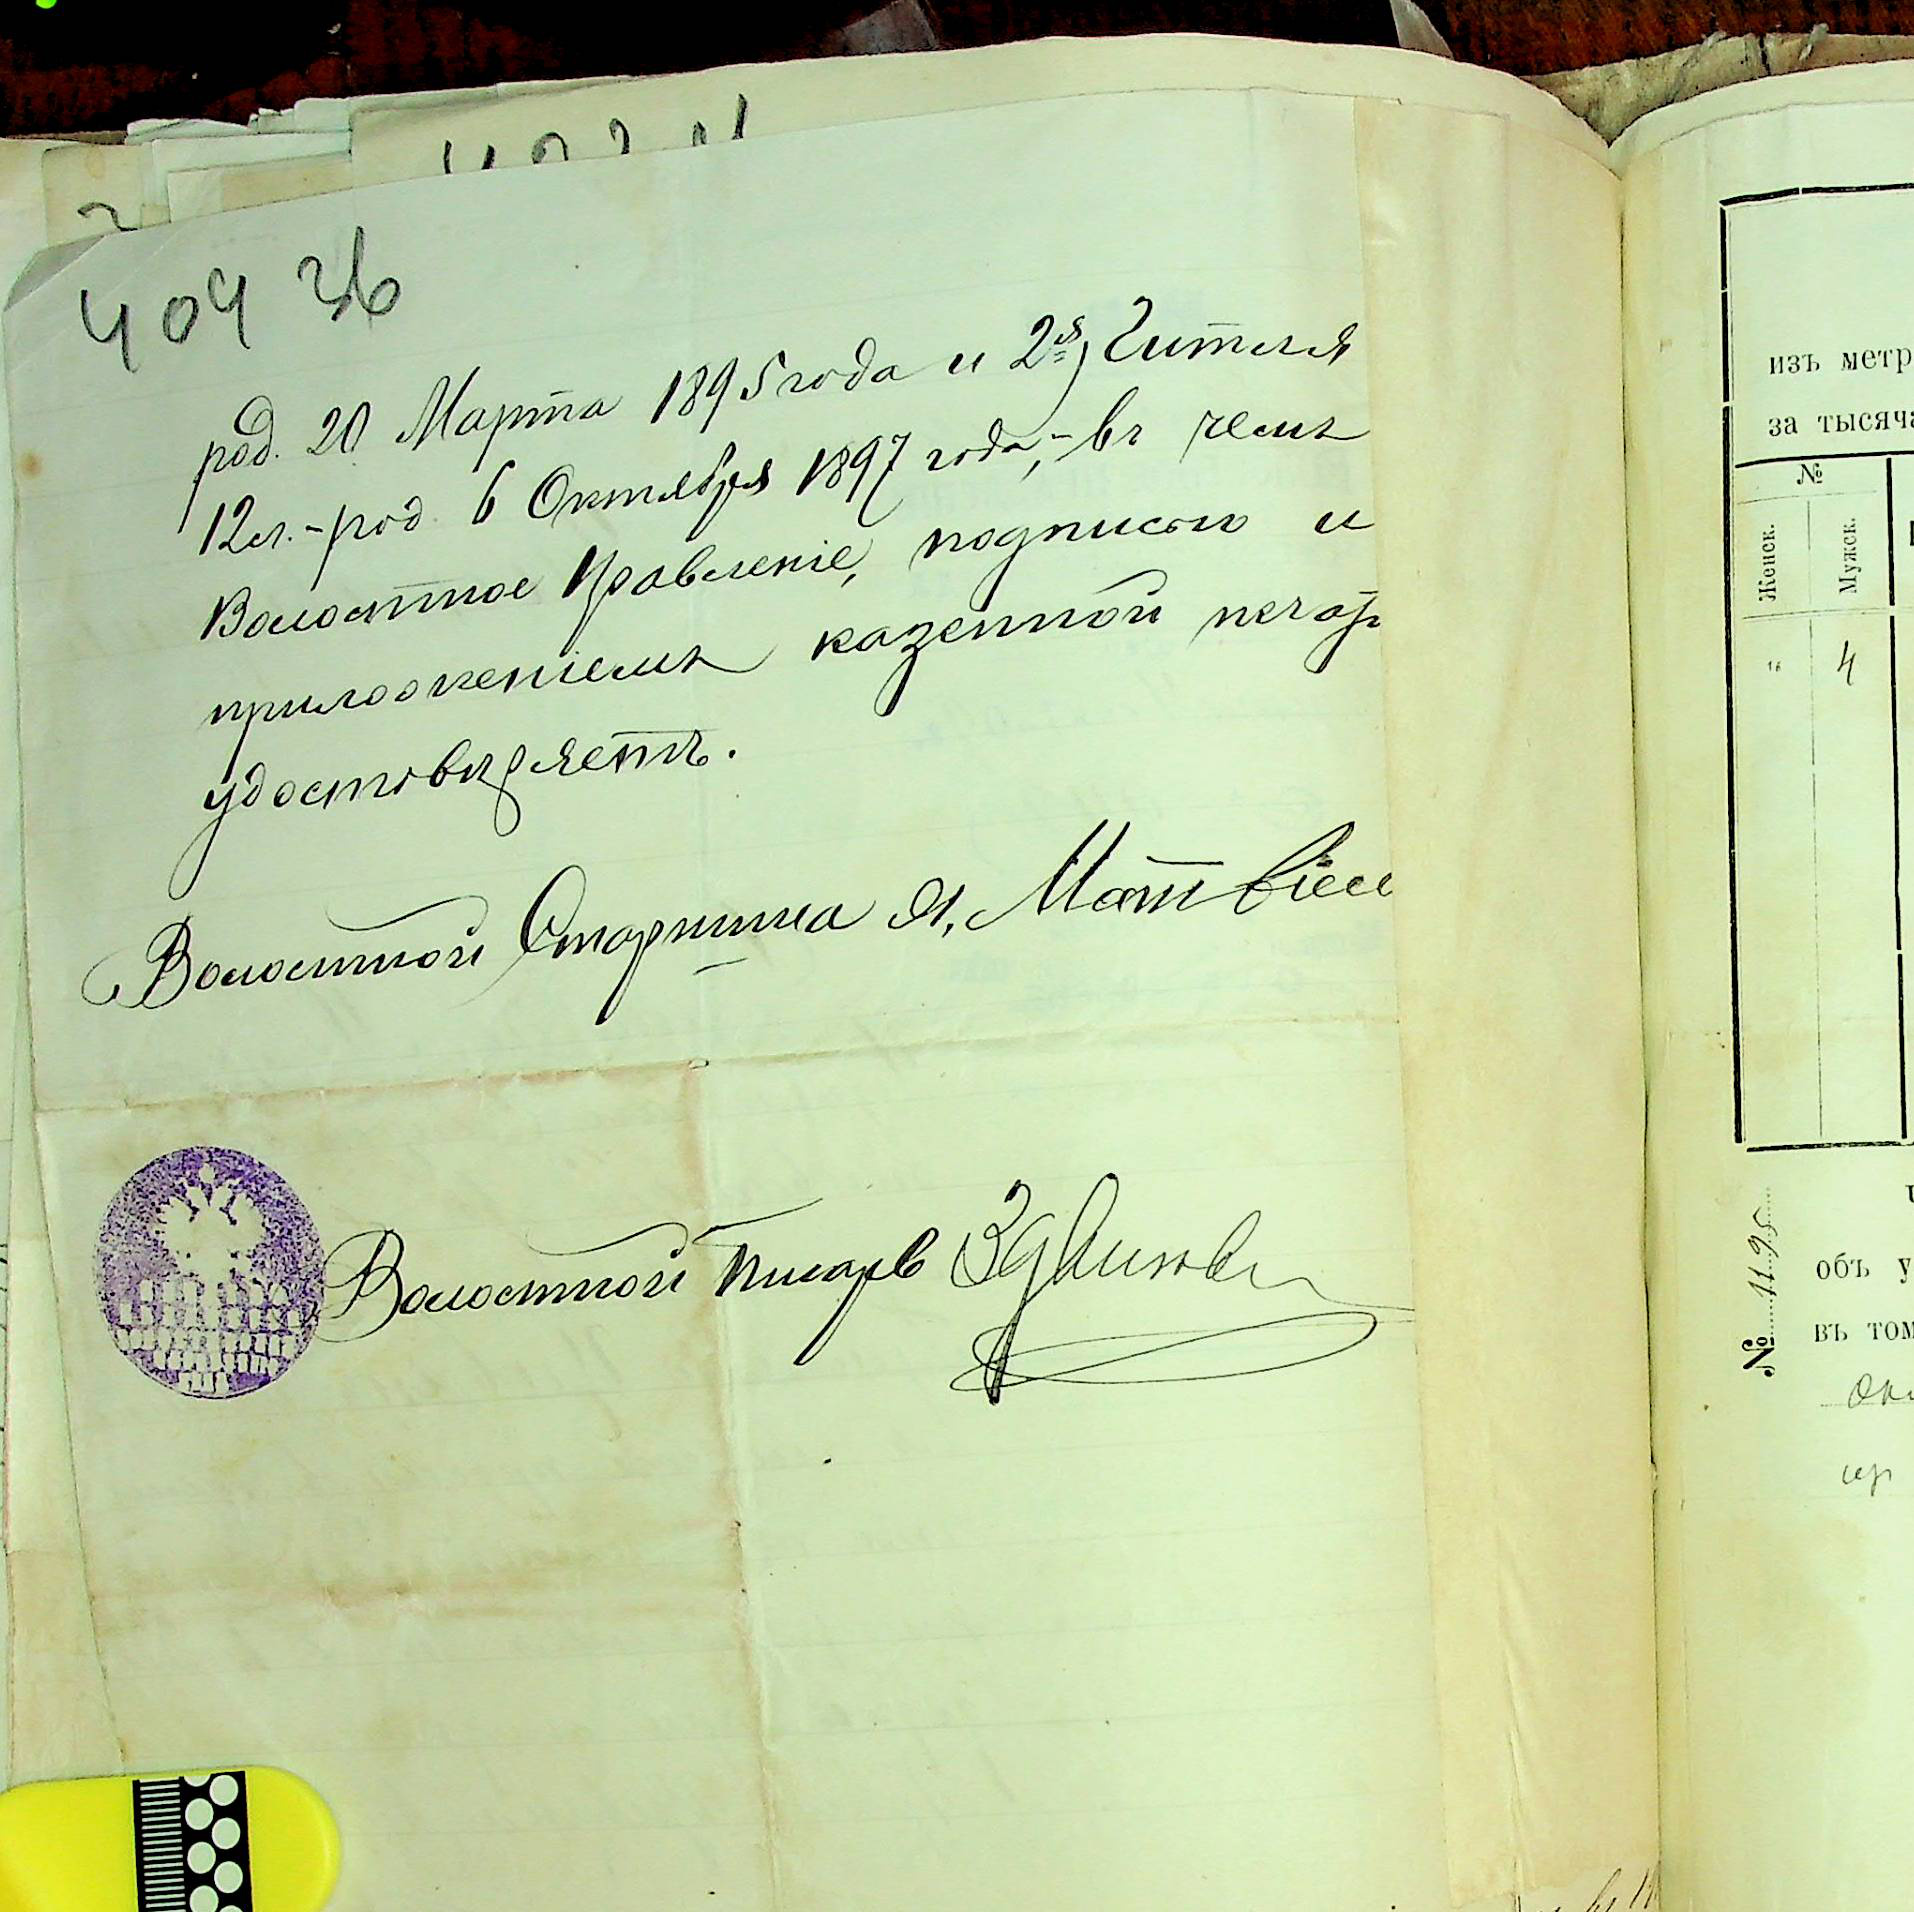 404 об
род. 20 Марта 1895 года и 2я, Гителя
12л.-род. 6 Октября 1897 года, - въ чемъ
Волостное Правленіе, подписью и
приложеніемъ казенной печат
удостовѣряетъ.
Волостной Старшина Я. Матвіе
Волостной Писарь
изъ метр
за тысяча
№
Женск. Мужск.
4
№ 1195
объ у
въ том